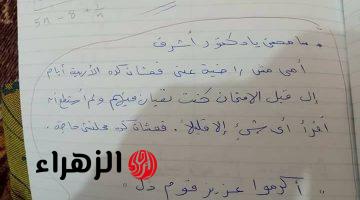 5n - 8 + 1/n
* سامحني يا دكتور أشرف
أمي مش راضية عني فعشان كده الأربعة أيام
إلى قبل الامتحان كنت تعبان فيهم ولم أستطع أن
أقرأ أي شئ إلا قليلاً . فعشان كده محلتش حاجة .
الزهراء
" أكرموا عزيز قوم ذل "